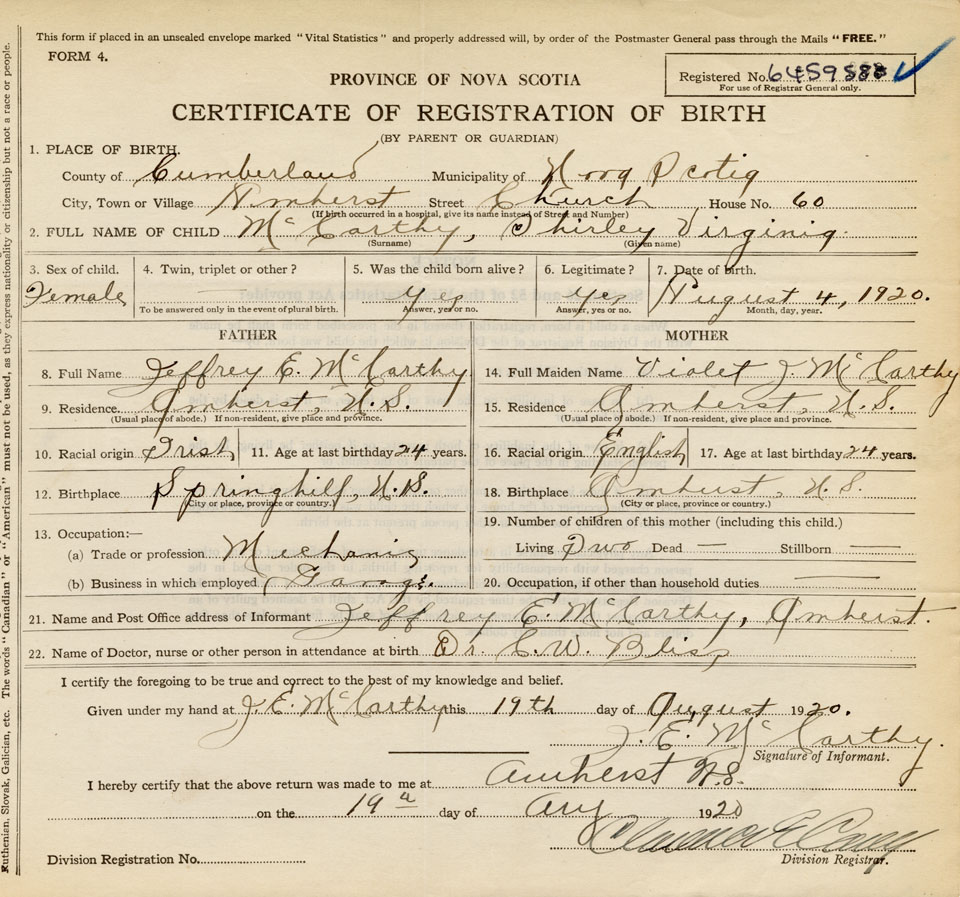 This form if placed in an unsealed envelope marked "Vital Statistics" and properly addressed will, by order of the Postmaster General pass through the Mails "FREE."
FORM 4.
PROVINCE OF NOVA SCOTIA
Registered No.
For use of Registrar General only.
CERTIFICATE OF REGISTRATION OF BIRTH
(BY PARENT OR GUARDIAN)
1. PLACE OF BIRTH.
County of Cumberland Municipality of Nova Scotia
City, Town or Village Amherst Street Church House No. 60
(If birth occurred in a hospital, give its name instead of Street and Number)
2. FULL NAME OF CHILD McCarthy, Shirley Virginia
(Surname) (Given name)
3. Sex of child. 4. Twin, triplet or other? 5. Was the child born alive? 6. Legitimate? 7. Date of birth.
Female — Yes Yes August 4, 1920.
To be answered only in the event of plural birth. Answer, yes or no. Answer, yes or no. Month, day, year.
FATHER
8. Full Name Jeffrey E. McCarthy
9. Residence Amherst, N.S.
(Usual place of abode.) If non-resident, give place and province.
10. Racial origin Irish 11. Age at last birthday 24 years.
12. Birthplace Springhill, N.S.
(City or place, province or country.)
13. Occupation:—
(a) Trade or profession Mechanic
(b) Business in which employed
MOTHER
14. Full Maiden Name Violet J. McCarthy
15. Residence Amherst, N.S.
(Usual place of abode.) If non-resident, give place and province.
16. Racial origin English 17. Age at last birthday 24 years.
18. Birthplace Amherst, N.S.
(City or place, province or country.)
19. Number of children of this mother (including this child.)
Living Two Dead — Stillborn —
20. Occupation, if other than household duties —
21. Name and Post Office address of Informant Jeffrey E. McCarthy, Amherst.
22. Name of Doctor, nurse or other person in attendance at birth Dr. C.W. Bliss
I certify the foregoing to be true and correct to the best of my knowledge and belief.
Given under my hand at J. E. McCarthy this 19th day of August 1920.
J. E. McCarthy.
Signature of Informant.
I hereby certify that the above return was made to me at Amherst N.S.
on the 19th day of Aug 1920
Division Registration No.
Division Registrar.
Ruthenian, Slovak, Galician, etc. The words "Canadian" or "American" must not be used, as they express nationality or citizenship but not a race or people.